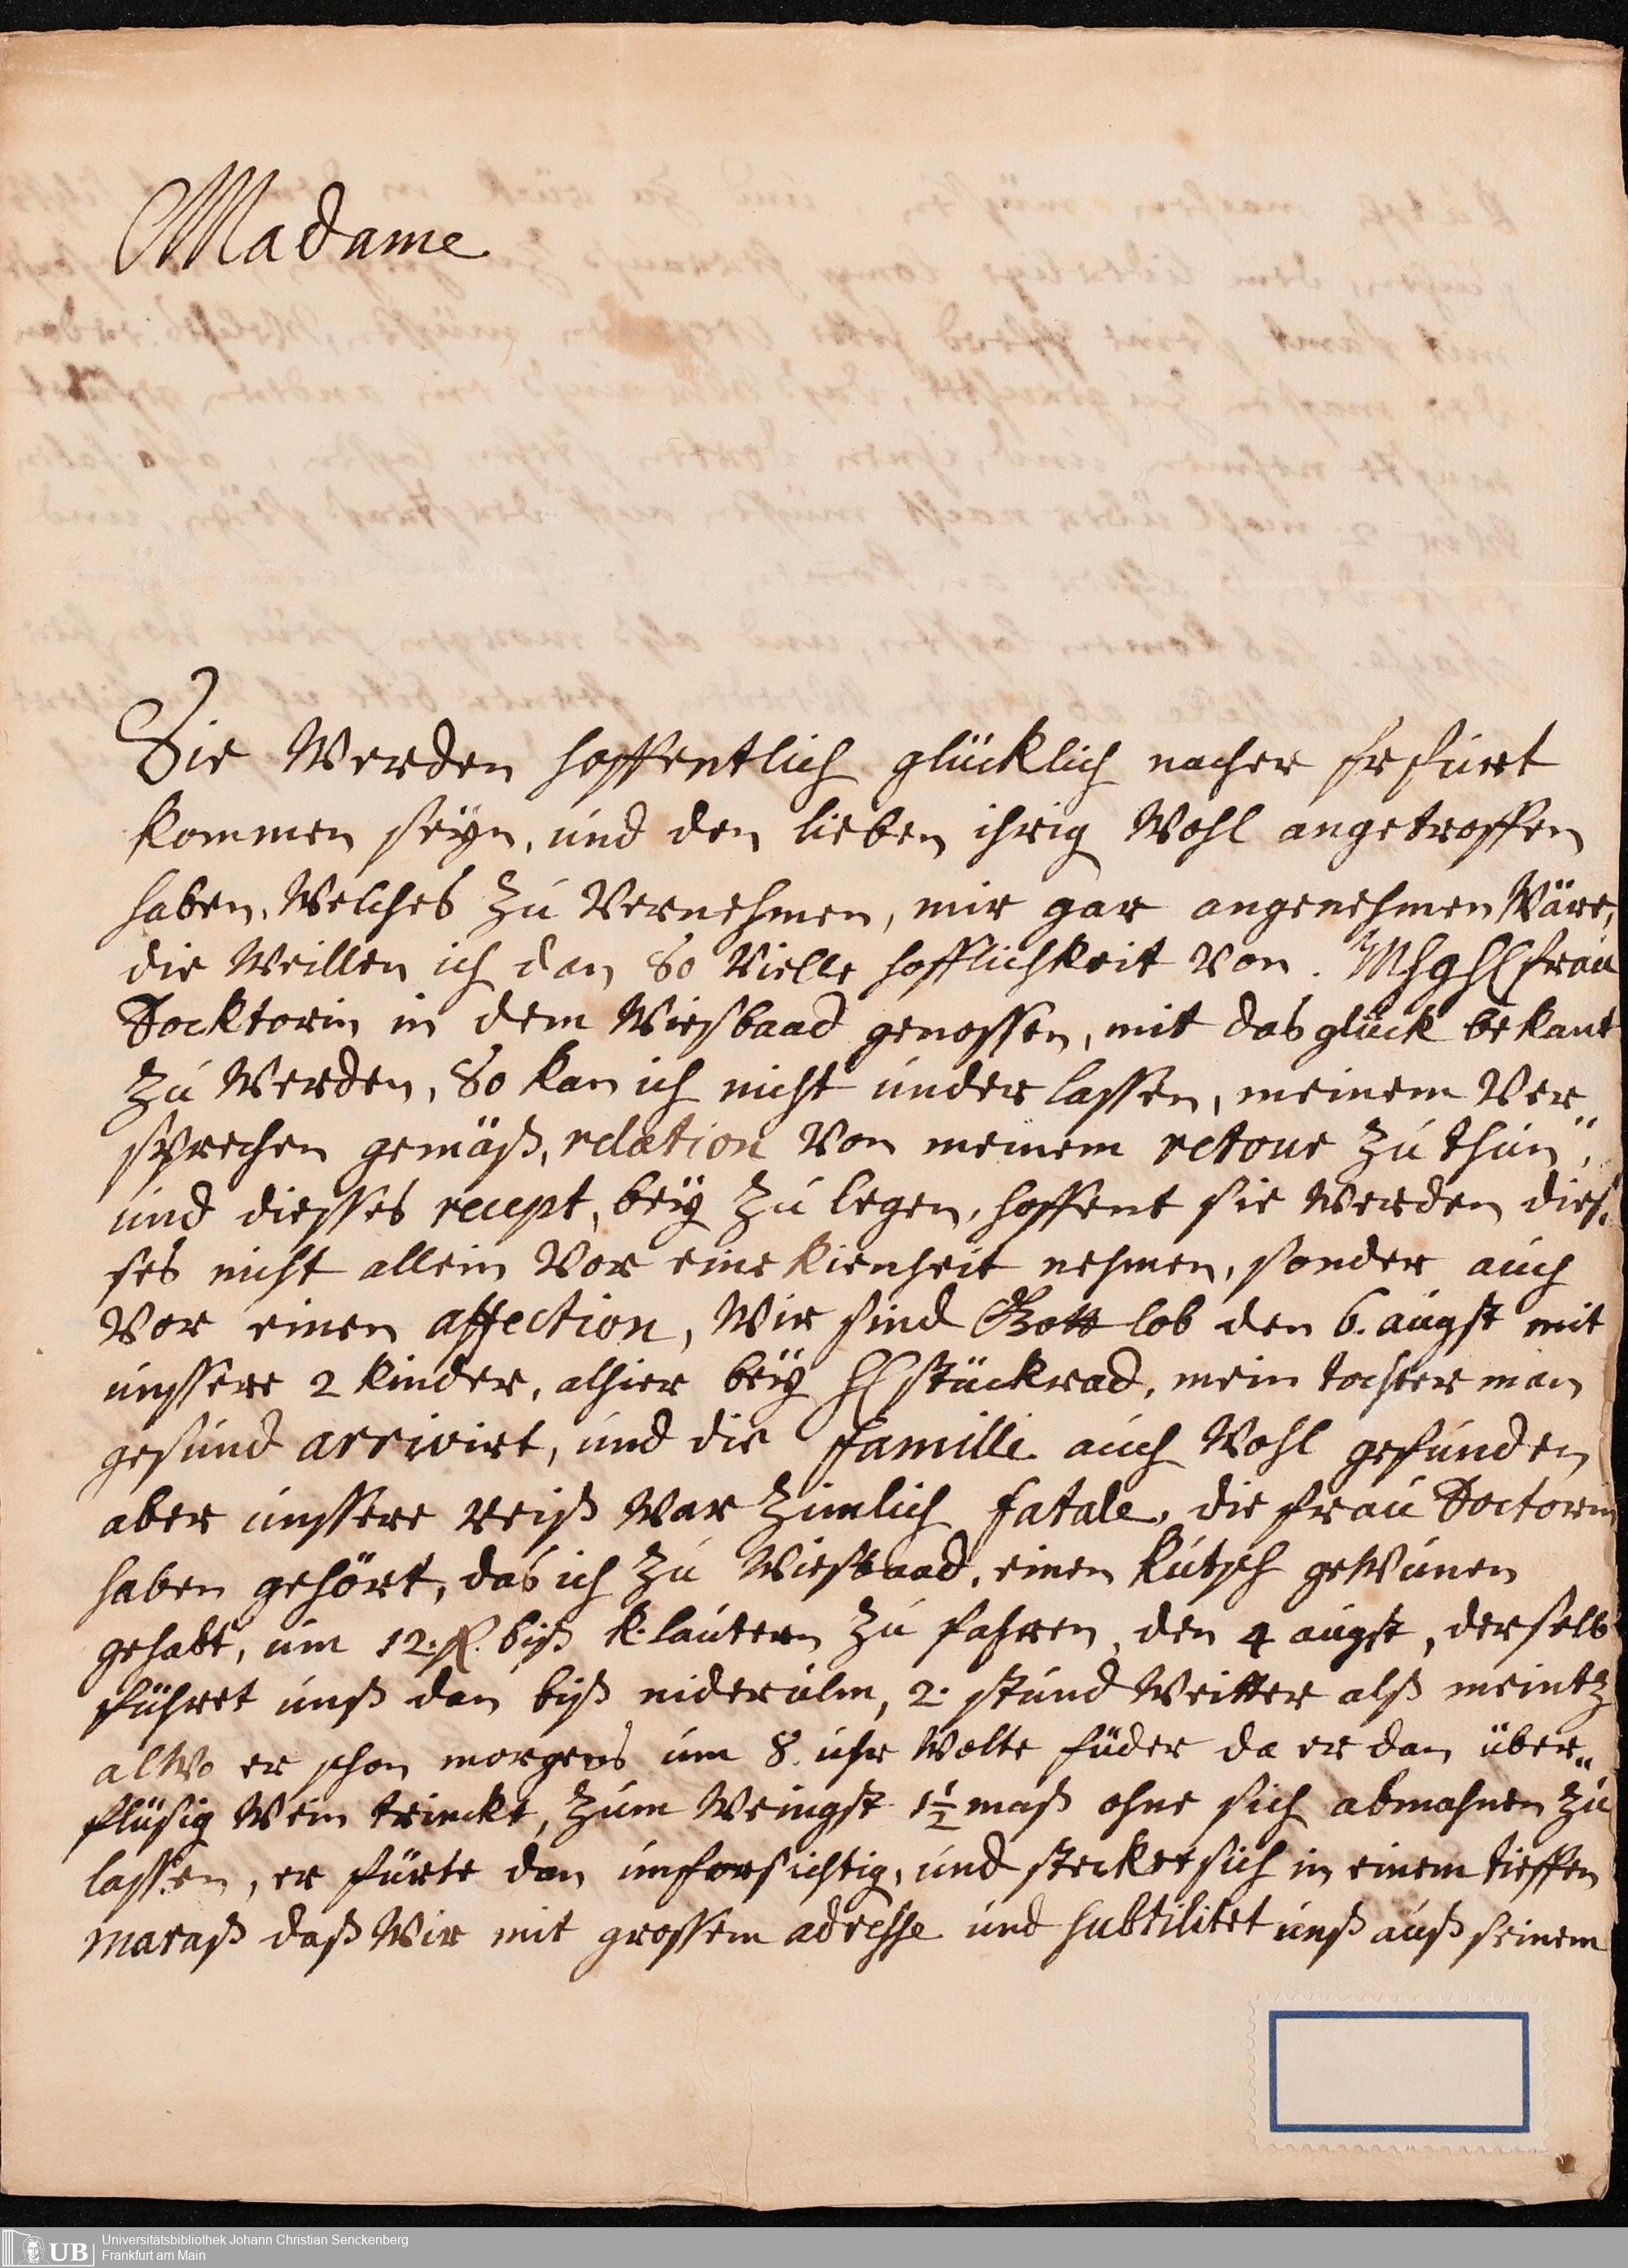 Madame
Sie Werden hoffentlich glücklich nacher frfurt
kommen seÿn, und den lieben ihrig Wohl angetroffen
haben, Welches zu Vernehmen, mir gar angenehmen Wäre,
die Weillen ich dan So Vielle hofflichkeit Von frau
Docktorin in dem Wiesbaad genossen, mit das glück bekant
zu Werden, So kan ich nicht under lassen, meinem Ver„
sprechen gemäß, relation Von meinem retour zu thun,
und diesses recept, beÿ zu legen, hoffent sie Werden dies„
ses nicht allein Vor eine kienheit nehmen, sonder auch
Vor einen affection, Wir sind Gott lob den 6. augst mit
unssere 2 kinder, alhier beÿ H stückrad, mein tochter man
gesund arrivirt, und die famille auch Wohl gefunden
aber unssere reiß War zimlich fatale, die frau Doctorin
haben gehört, das ich zu Wiesbaad, einen kutsch geWunen
gehabt, um 12. fl. biß k: lautern zu fahren, den 4 augst, derselb
führet unß dan biß niderulm, 2. stund Weitter alß meintz
alWo er schon morgens um 8. uhr Wolte füder da er dan über„
flüsig Wein trinckt, zum Weingst 1½ maß ohne sich abmahnen zu
lassen, er fürte dan unforsichtig, und stecket sich in einem tieffen
maraß daß Wir mit grossem adresse und subtilitet unß auß seinem
UB Universitätsbibliothek Johann Christian Senckenberg
Frankfurt am Main